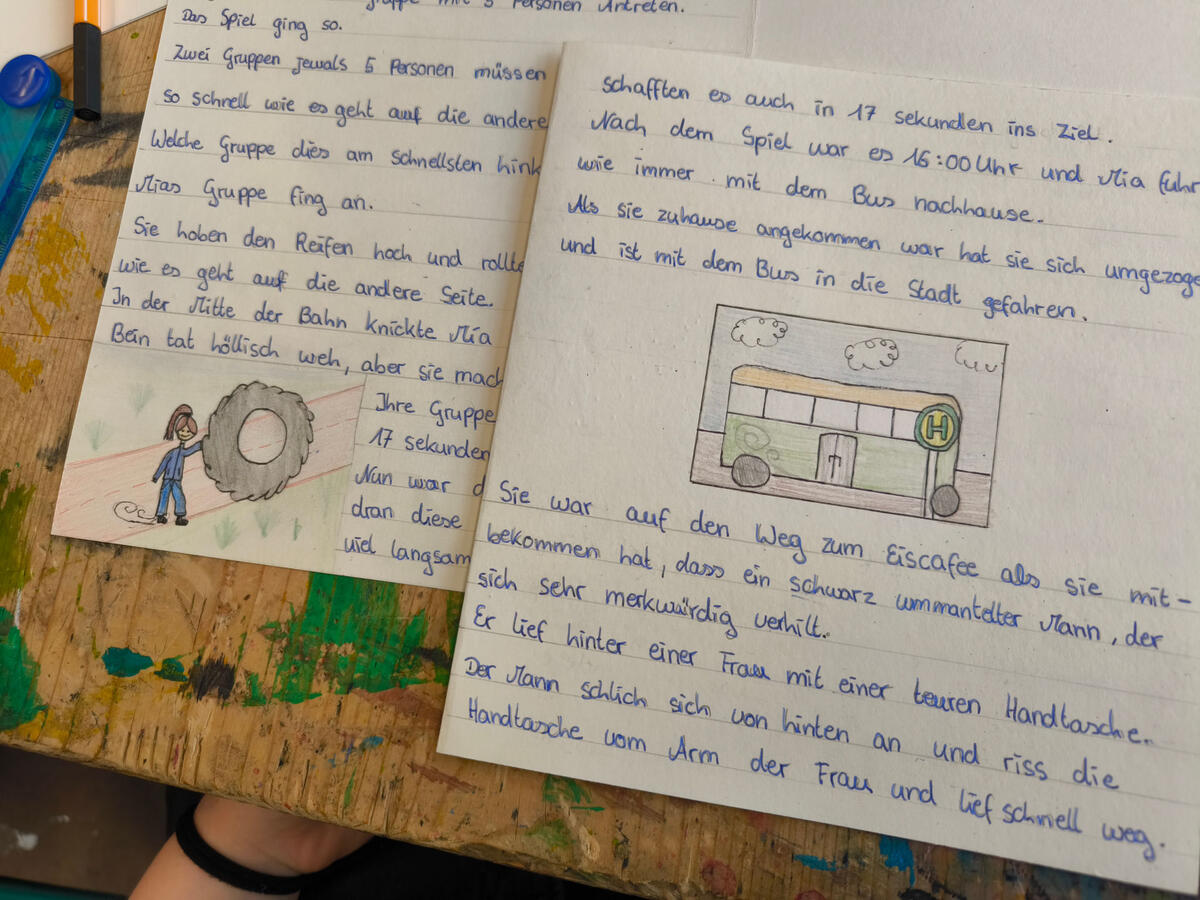 5 Personen Antreten.
Das Spiel ging so.
Zwei Gruppen jewals 5 Personen müssen
so schnell wie es geht auf die andere
Welche Gruppe dies am schnellsten hink
Mias Gruppe fing an.
Sie hoben den Reifen hoch und rollte
wie es geht auf die andere Seite.
In der Mitte der Bahn knickte Mia
Bein tat höllisch weh, aber sie mach
Ihre Gruppe
17 sekunden
Nun war d
dran diese
viel langsam
schafften es auch in 17 sekunden ins Ziel.
Nach dem Spiel war es 16:00 Uhr und Mia fuhr
wie immer mit dem Bus nachhause.
Als sie zuhause angekommen war hat sie sich umgezoge
und ist mit dem Bus in die Stadt gefahren.
H
Sie war auf den Weg zum Eiscafee als sie mit-
bekommen hat, dass ein schwarz ummantelter Mann, der
sich sehr merkwürdig verhilt.
Er lief hinter einer Frau mit einer teuren Handtasche.
Der Mann schlich sich von hinten an und riss die
Handtasche vom Arm der Frau und lief schnell weg.